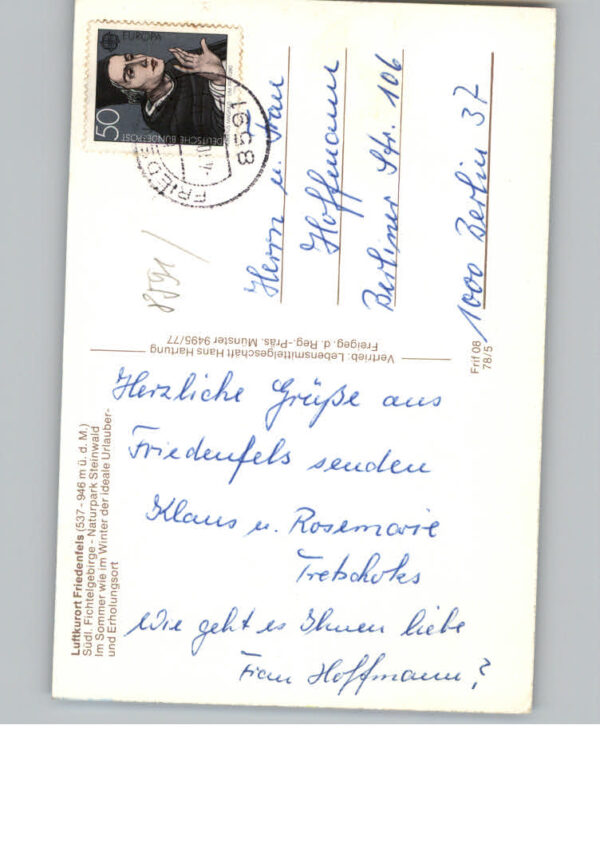 Luftkurort Friedenfels (537 - 946 m ü. d. M.)
Südl. Fichtelgebirge - Naturpark Steinwald
Im Sommer wie im Winter der ideale Urlauber-
und Erholungsort
Herzliche Grüße aus
Friedenfels senden
Klaus u. Rosemarie
Tretschoks
Wie geht es Ihnen liebe
Frau Hoffmann?
Vertrieb: Lebensmittelgeschäft Hans Hartung
Freigeg. d. Reg.-Präs. Münster 9495/77
EUROPA
50
DEUTSCHE BUNDESPOST
8591
8591
Herrn u. Frau
Hoffmann
Berliner Str. 106
1000 Berlin 37
Frif 08
78/5